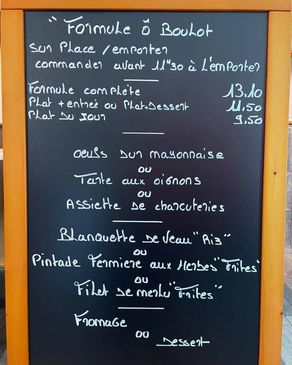 "Formule Ô Boulot
sur Place / emporter
commander avant 11h30 à L'emporter
Formule complète 13.10
Plat + entrée ou Plat.Dessert 11.50
Plat Du jour 9.50
oeufs Dur mayonnaise
ou
Tarte aux oignons
ou
Assiette De charcuteries
Blanquette De Veau "Riz"
ou
Pintade Fermiere aux Herbes "Frites"
ou
Filet De merlu "Frites"
Fromage
ou
Dessert